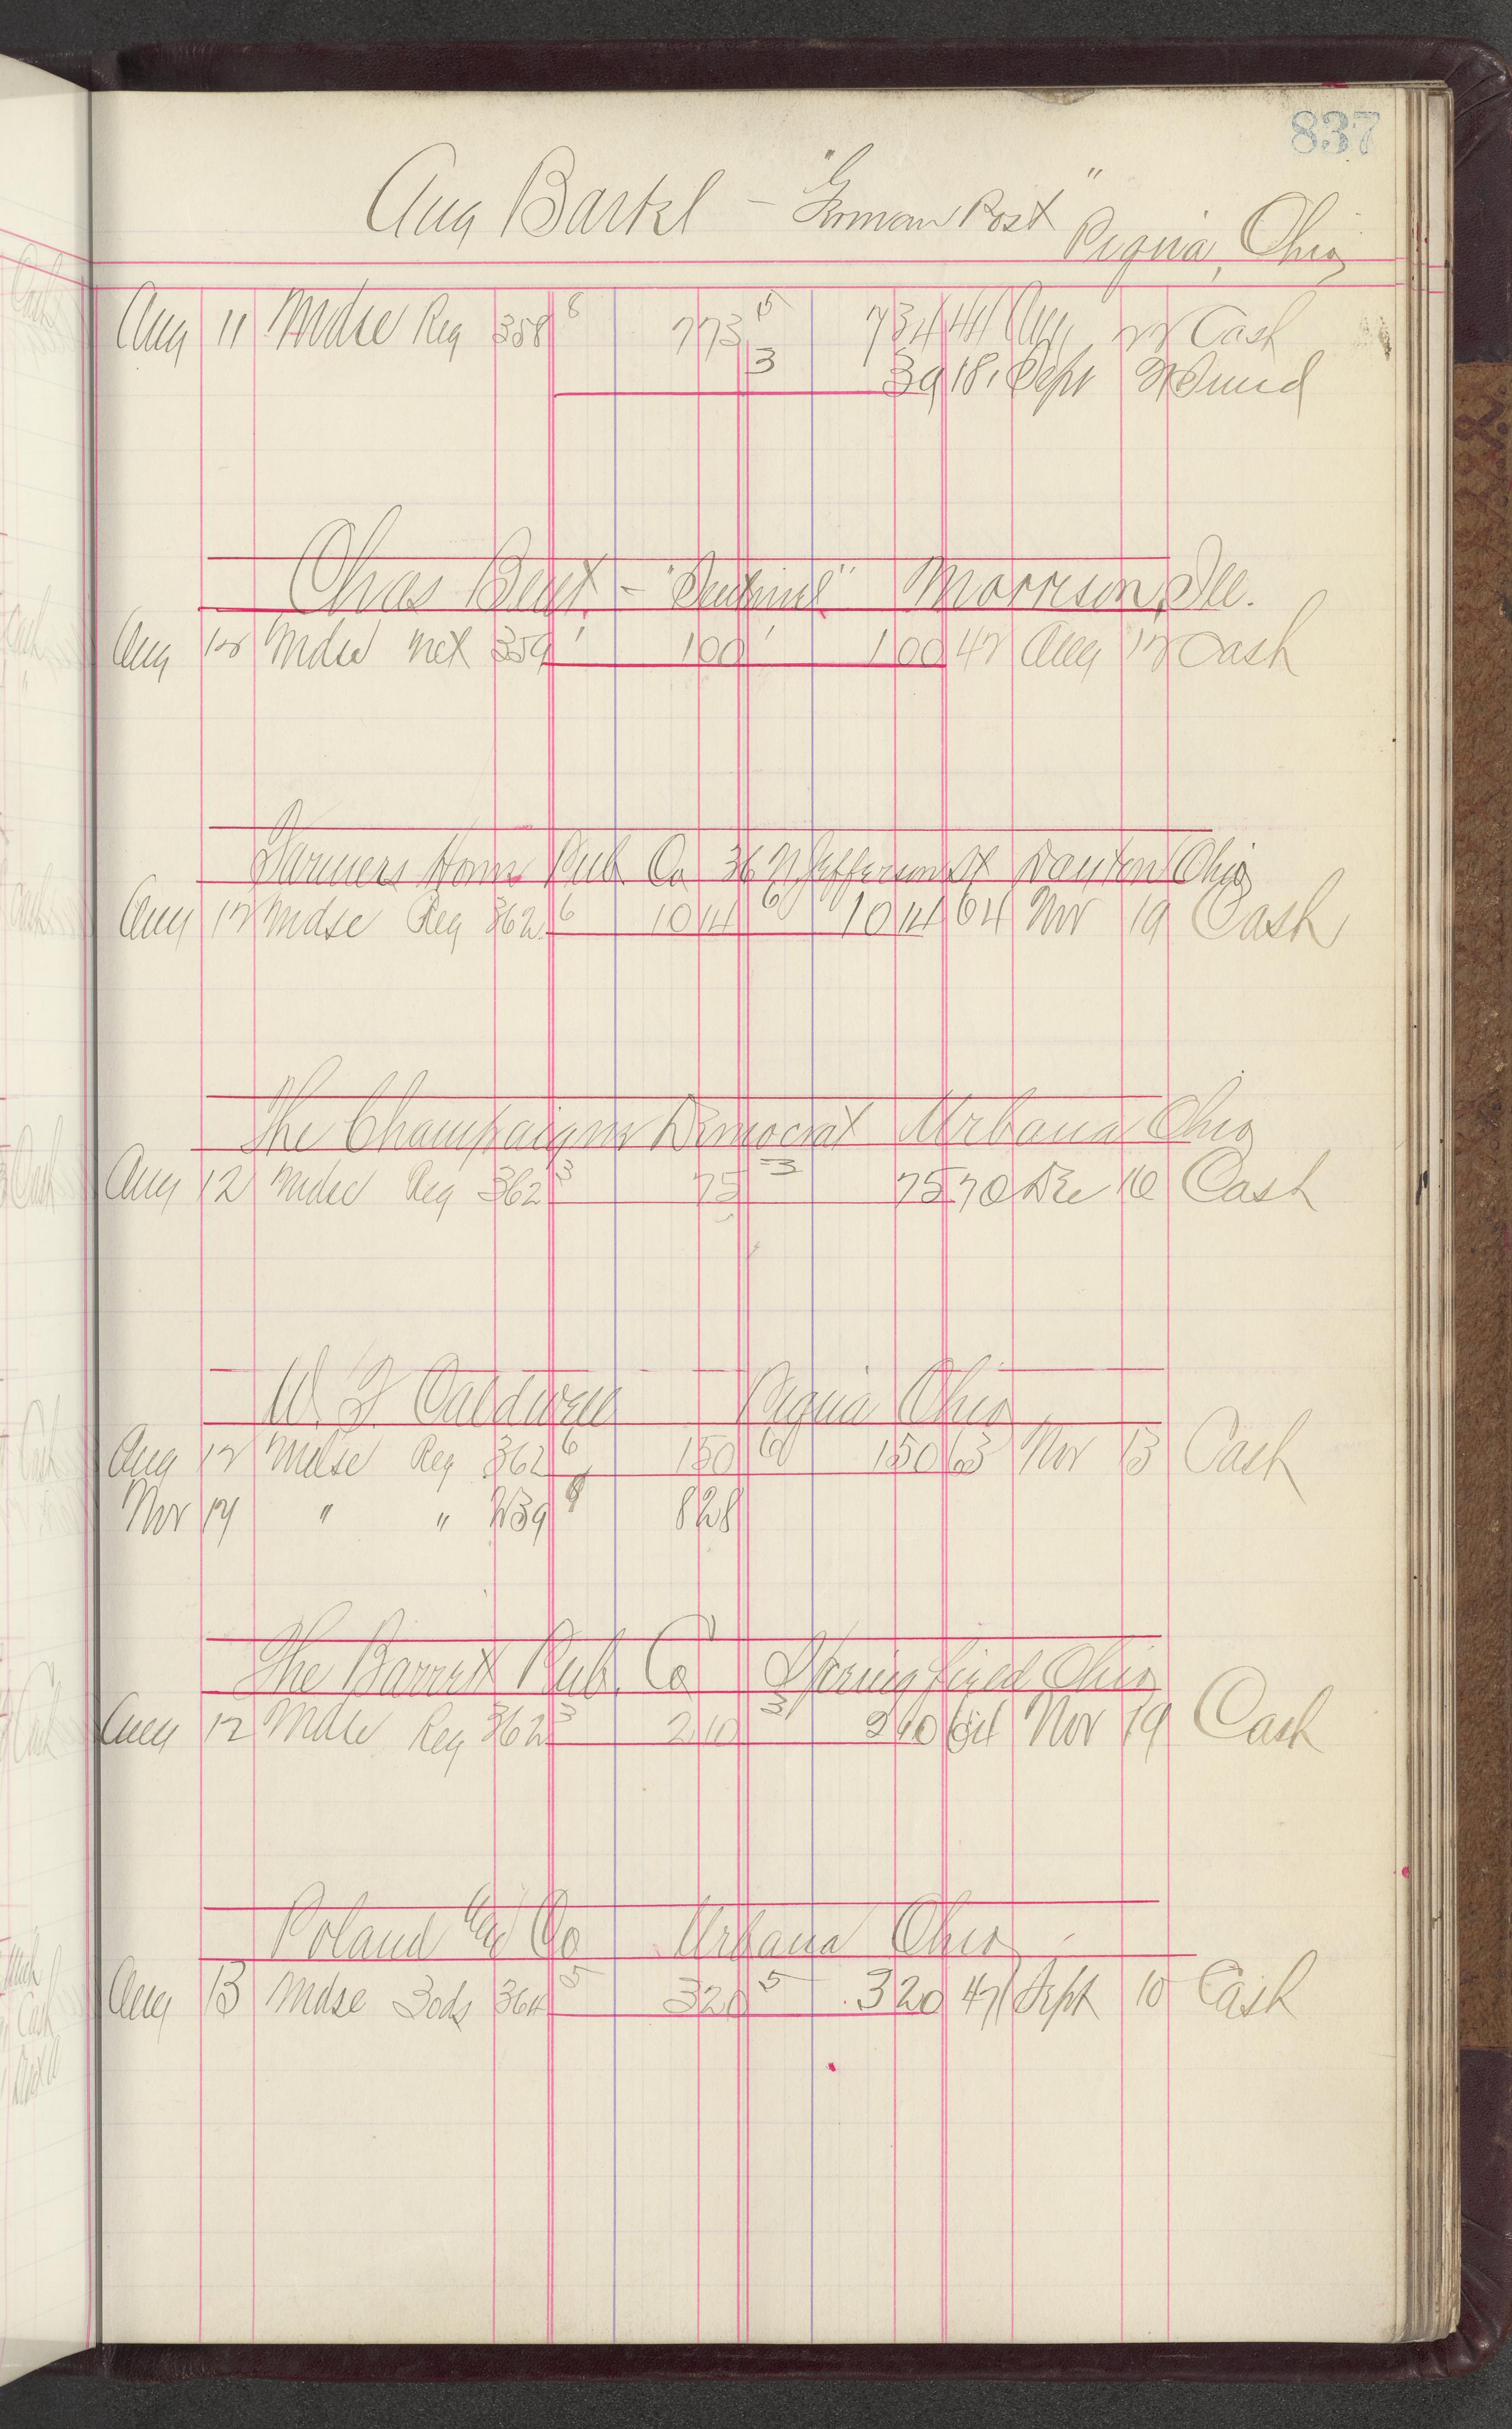 837
Aug Bartel - "German Post" Piqua, Ohio
Aug 11 Mdse Reg 358 8 773 5 734 44 Aug 22 Cash
3 39 18 Sept
Chas Bent. - "Sentinel" Morrison, Ill.
Aug 12 Mdse net 359 1 100 1 100 42 Aug 12 Cash
Farmers Home Pub. Co 36 N Jefferson St Dayton Ohio
Aug 12 Mdse Reg 362 6 1014 6 1014 64 Nov 19 Cash
The Champaign Democrat Urbana Ohio
Aug 12 Mdse Reg 362 3 75 3 75 70 Dec 16 Cash
W. F. Caldwell Piqua Ohio
Aug 12 Mdse Reg 362 6 150 6 150 63 Nov 13 Cash
Nov 14 " " 239 828
The Barrett Pub. Co Springfield Ohio
Aug 12 Mdse Reg 362 3 210 3 210 64 Nov 19 Cash
Poland & Co Urbana Ohio
Aug 13 Mdse 30ds 364 5 320 5 320 47 Sept 10 Cash